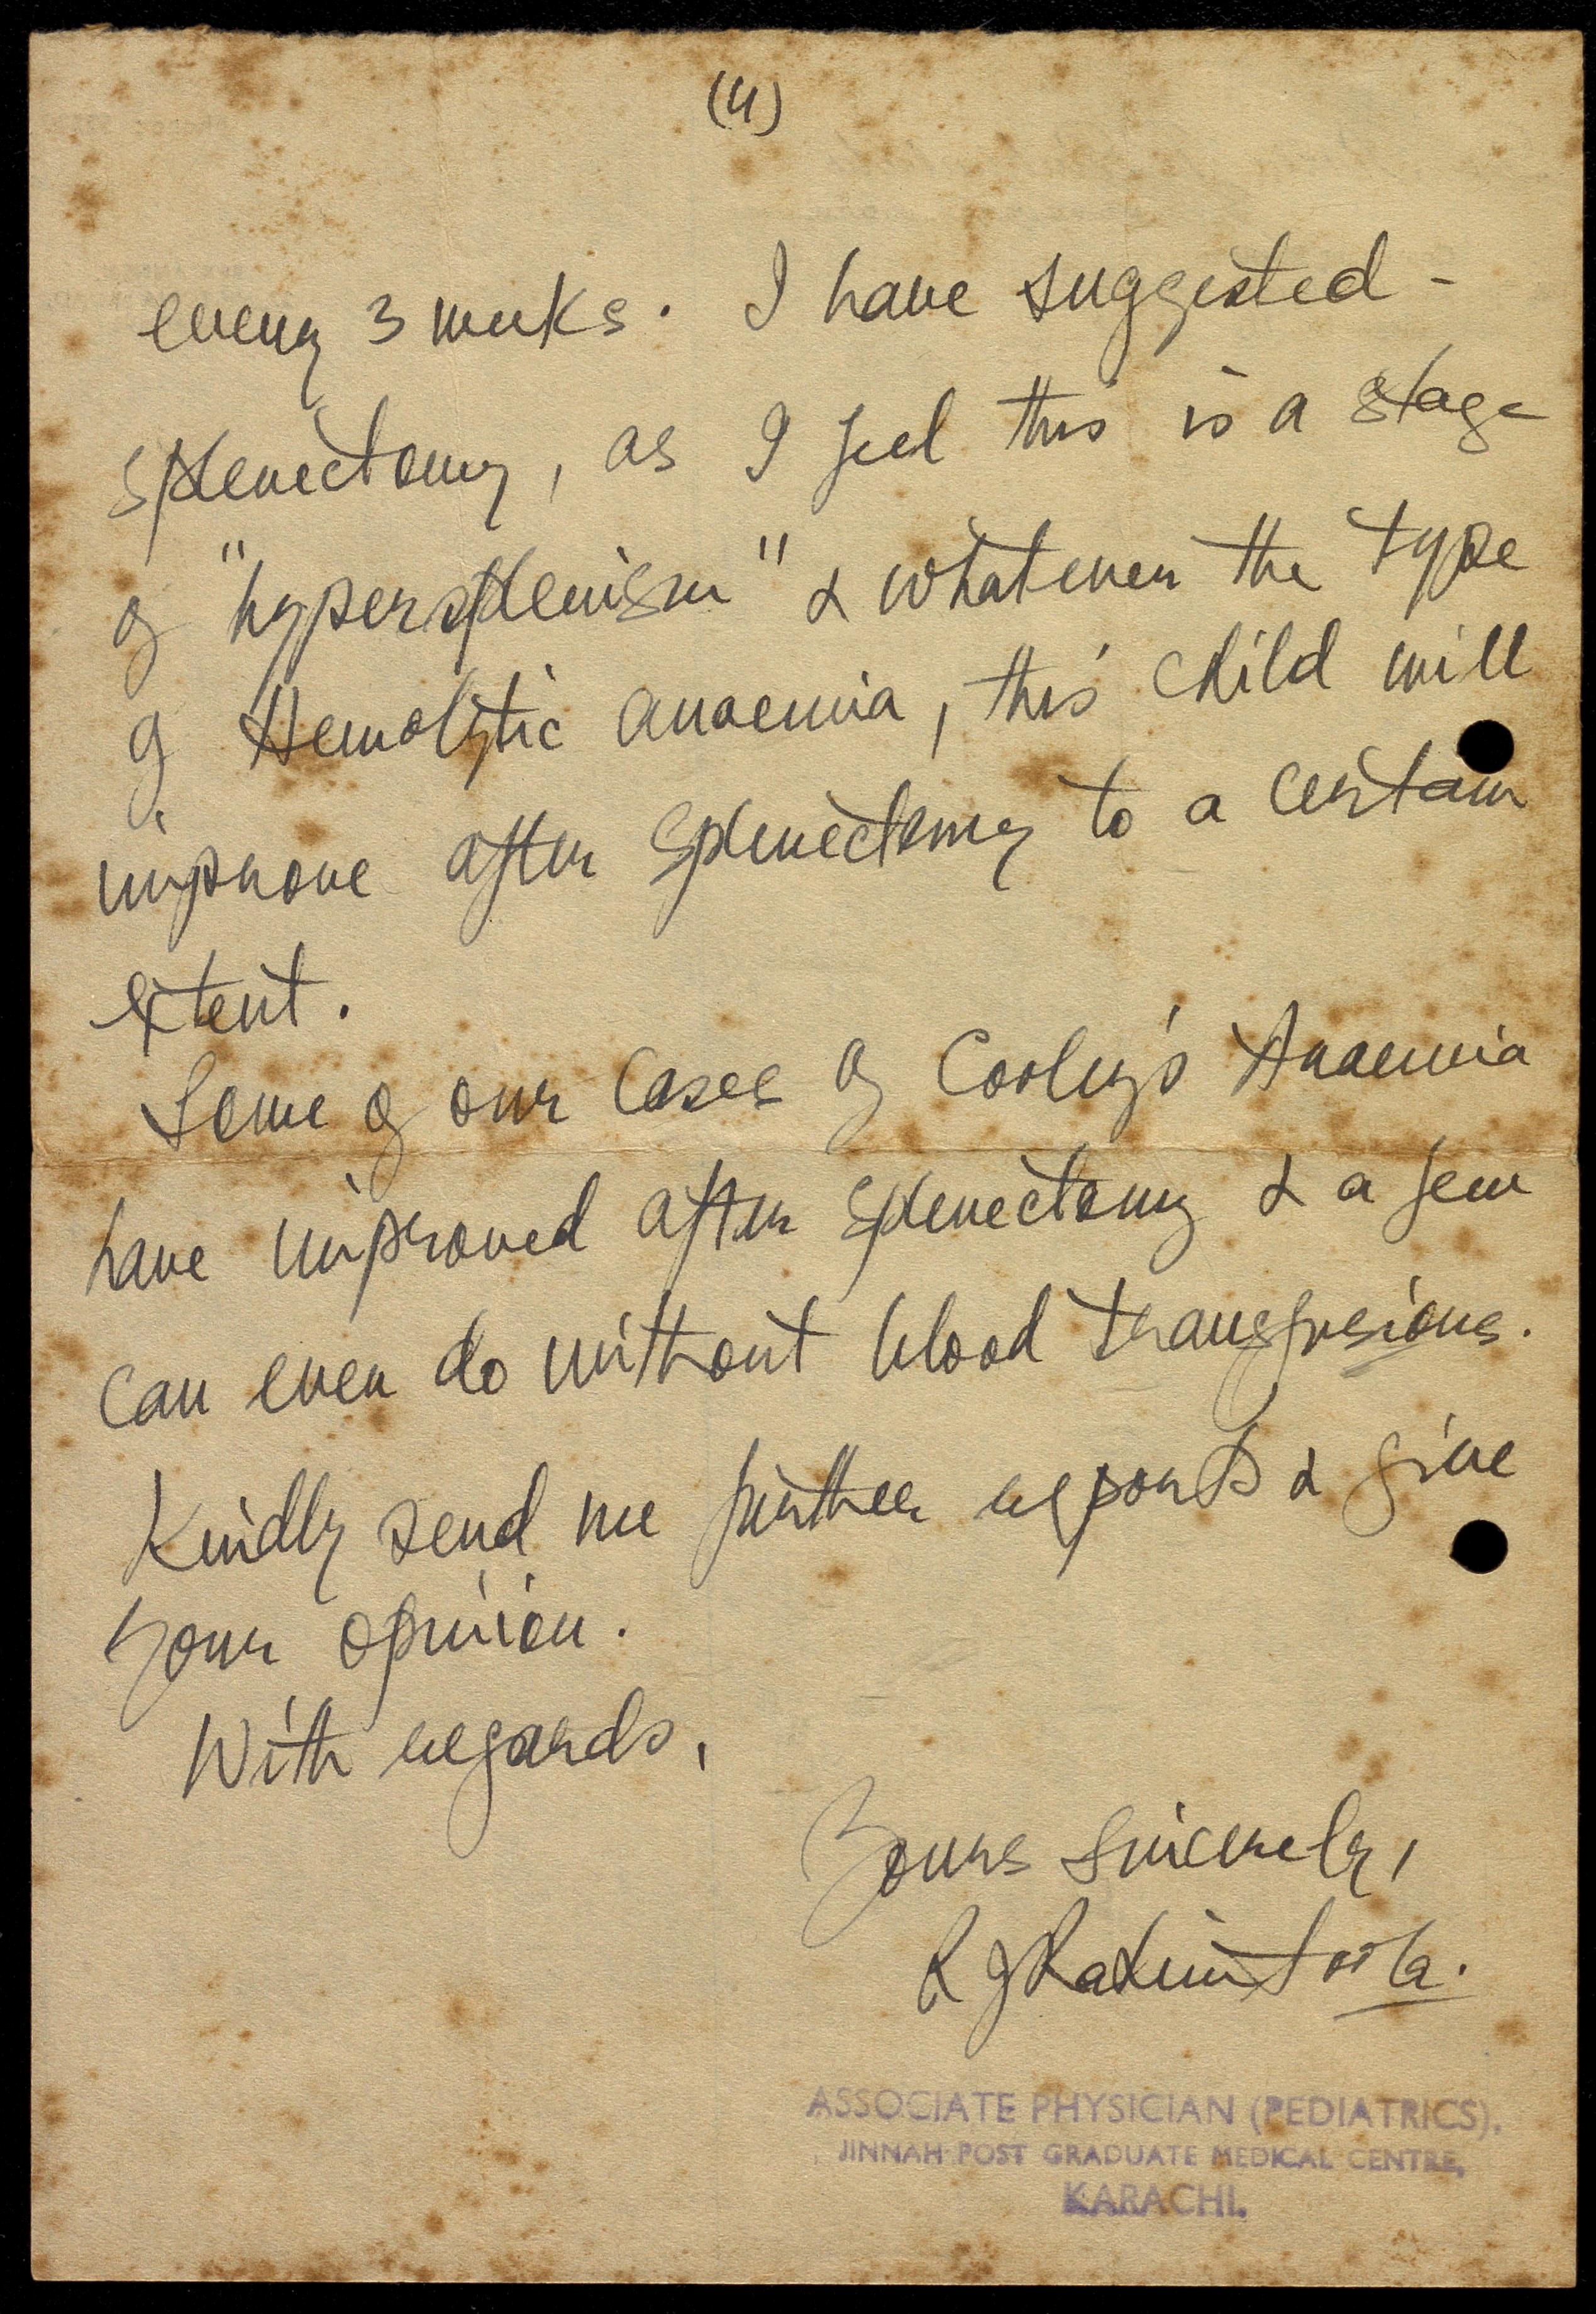 (4)
every 3 weeks. I have suggested -
splenectomy, as I feel this is a stage
of "hypersplenism" & whatever the type
of Hemolytic anaemia, this child will
improve after splenectomy to a certain
extent.
Some of our cases of Cooley's Anaemia
have improved after splenectomy & a few
can even do without blood transfusions.
Kindly send me further reports & give
your opinion.
With regards,
Yours Sincerely,
R J Rahimtoola.
ASSOCIATE PHYSICIAN (PEDIATRICS).
JINNAH POST GRADUATE MEDICAL CENTRE,
KARACHI.